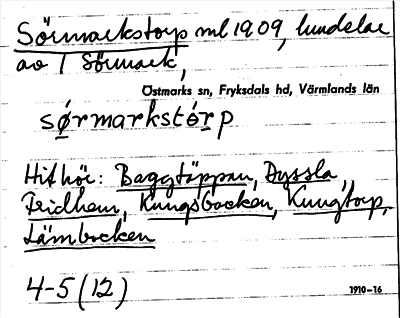 Sörmarkstorp ml 1909, lundelar
av 1 Sörmark,
Östmarks sn, Fryksdals hd, Värmlands län
sǿrmarkstórp
Hithör: Baggtäppan, Dyssla,
Fridhem, Kungsbacken, Kungtorp,
Lämbacken
4-5 (12)
1910-16